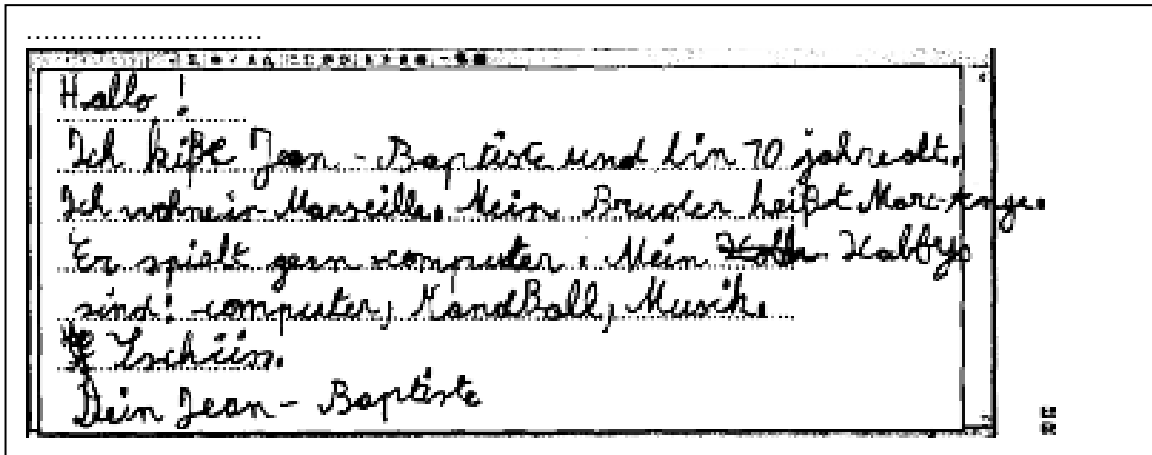 Hallo !
Ich heiße Jean - Baptiste und bin 10 jahrealt.
Ich wohne in Marseille. Mein Bruder heißt Marc-Ange.
Er spielt gern computer. Mein Hobbys
sind: computer, HandBall, Musik.
Tschüss.
Dein Jean - Baptiste